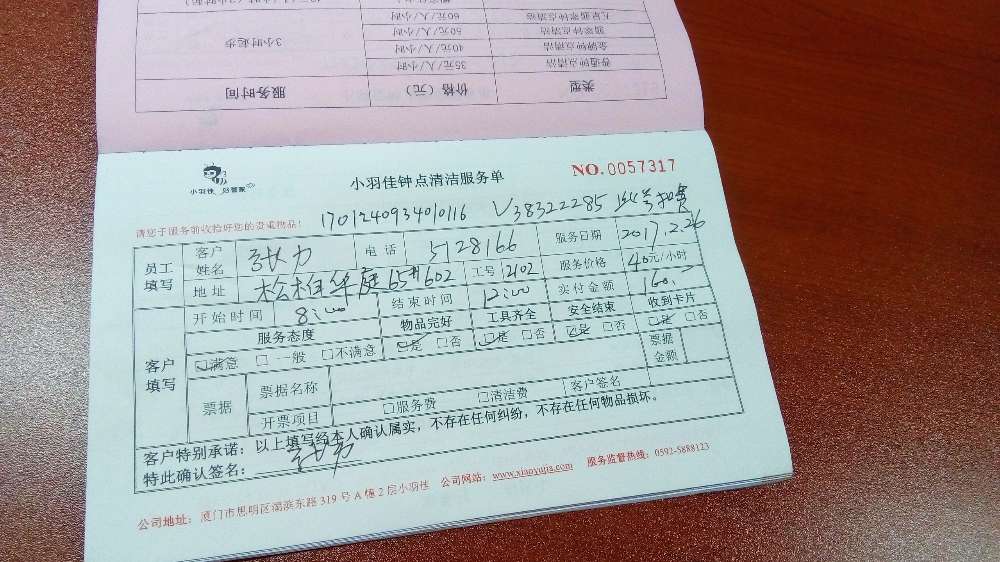 类型 价格（元） 服务时间
普通钟点清洁 35元/人/小时 3小时起步
金牌钟点清洁 40元/人/小时
翡翠钟点清洁 50元/人/小时
60元/人/小时
小羽佳 好管家
小羽佳钟点清洁服务单
NO.0057317
请您于服务前收拾好您的贵重物品！
1701240934010116 V38322285 此号扣费
员工填写 客户姓名 张力 电话 5128166 服务日期 2017.2.26
地址 松柏华庭65#602 工号 2102 服务价格 40元/小时
客户填写 开始时间 8:00 结束时间 12:00 实付金额 160.
服务态度 物品完好 工具齐全 安全结束 收到卡片
☑满意 □一般 □不满意 ☑是 □否 ☑是 □否 ☑是 □否 ☑是 □否
票据 票据名称 票据金额
开票项目 □服务费 □清洁费 客户签名
客户特别承诺：以上填写经本人确认属实，不存在任何纠纷，不存在任何物品损坏。
特此确认签名：
公司地址：厦门市思明区湖滨东路319号A幢2层小羽佳 公司网站：www.xiaoyujia.com 服务监督热线：0592-5888123